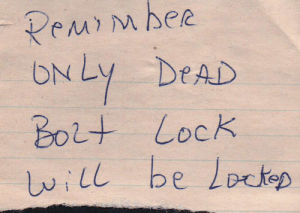 Remimber
ONLY DeAD
Bolt Lock
will be Locked